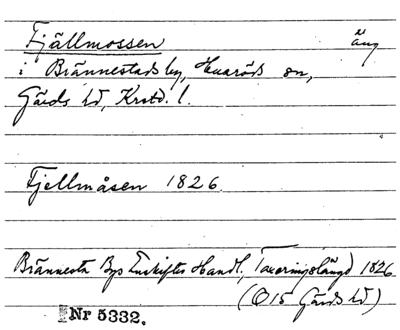 Fjällmossen äng
i Brännestads by, Huaröds sn,
Gärds hd, Krstd. l.
Fjellmåsen 1826
Brännesta Bys Enskiftes Handl, Taxeringslängd 1826
(O15 Gärds hd)
Nr 5332.